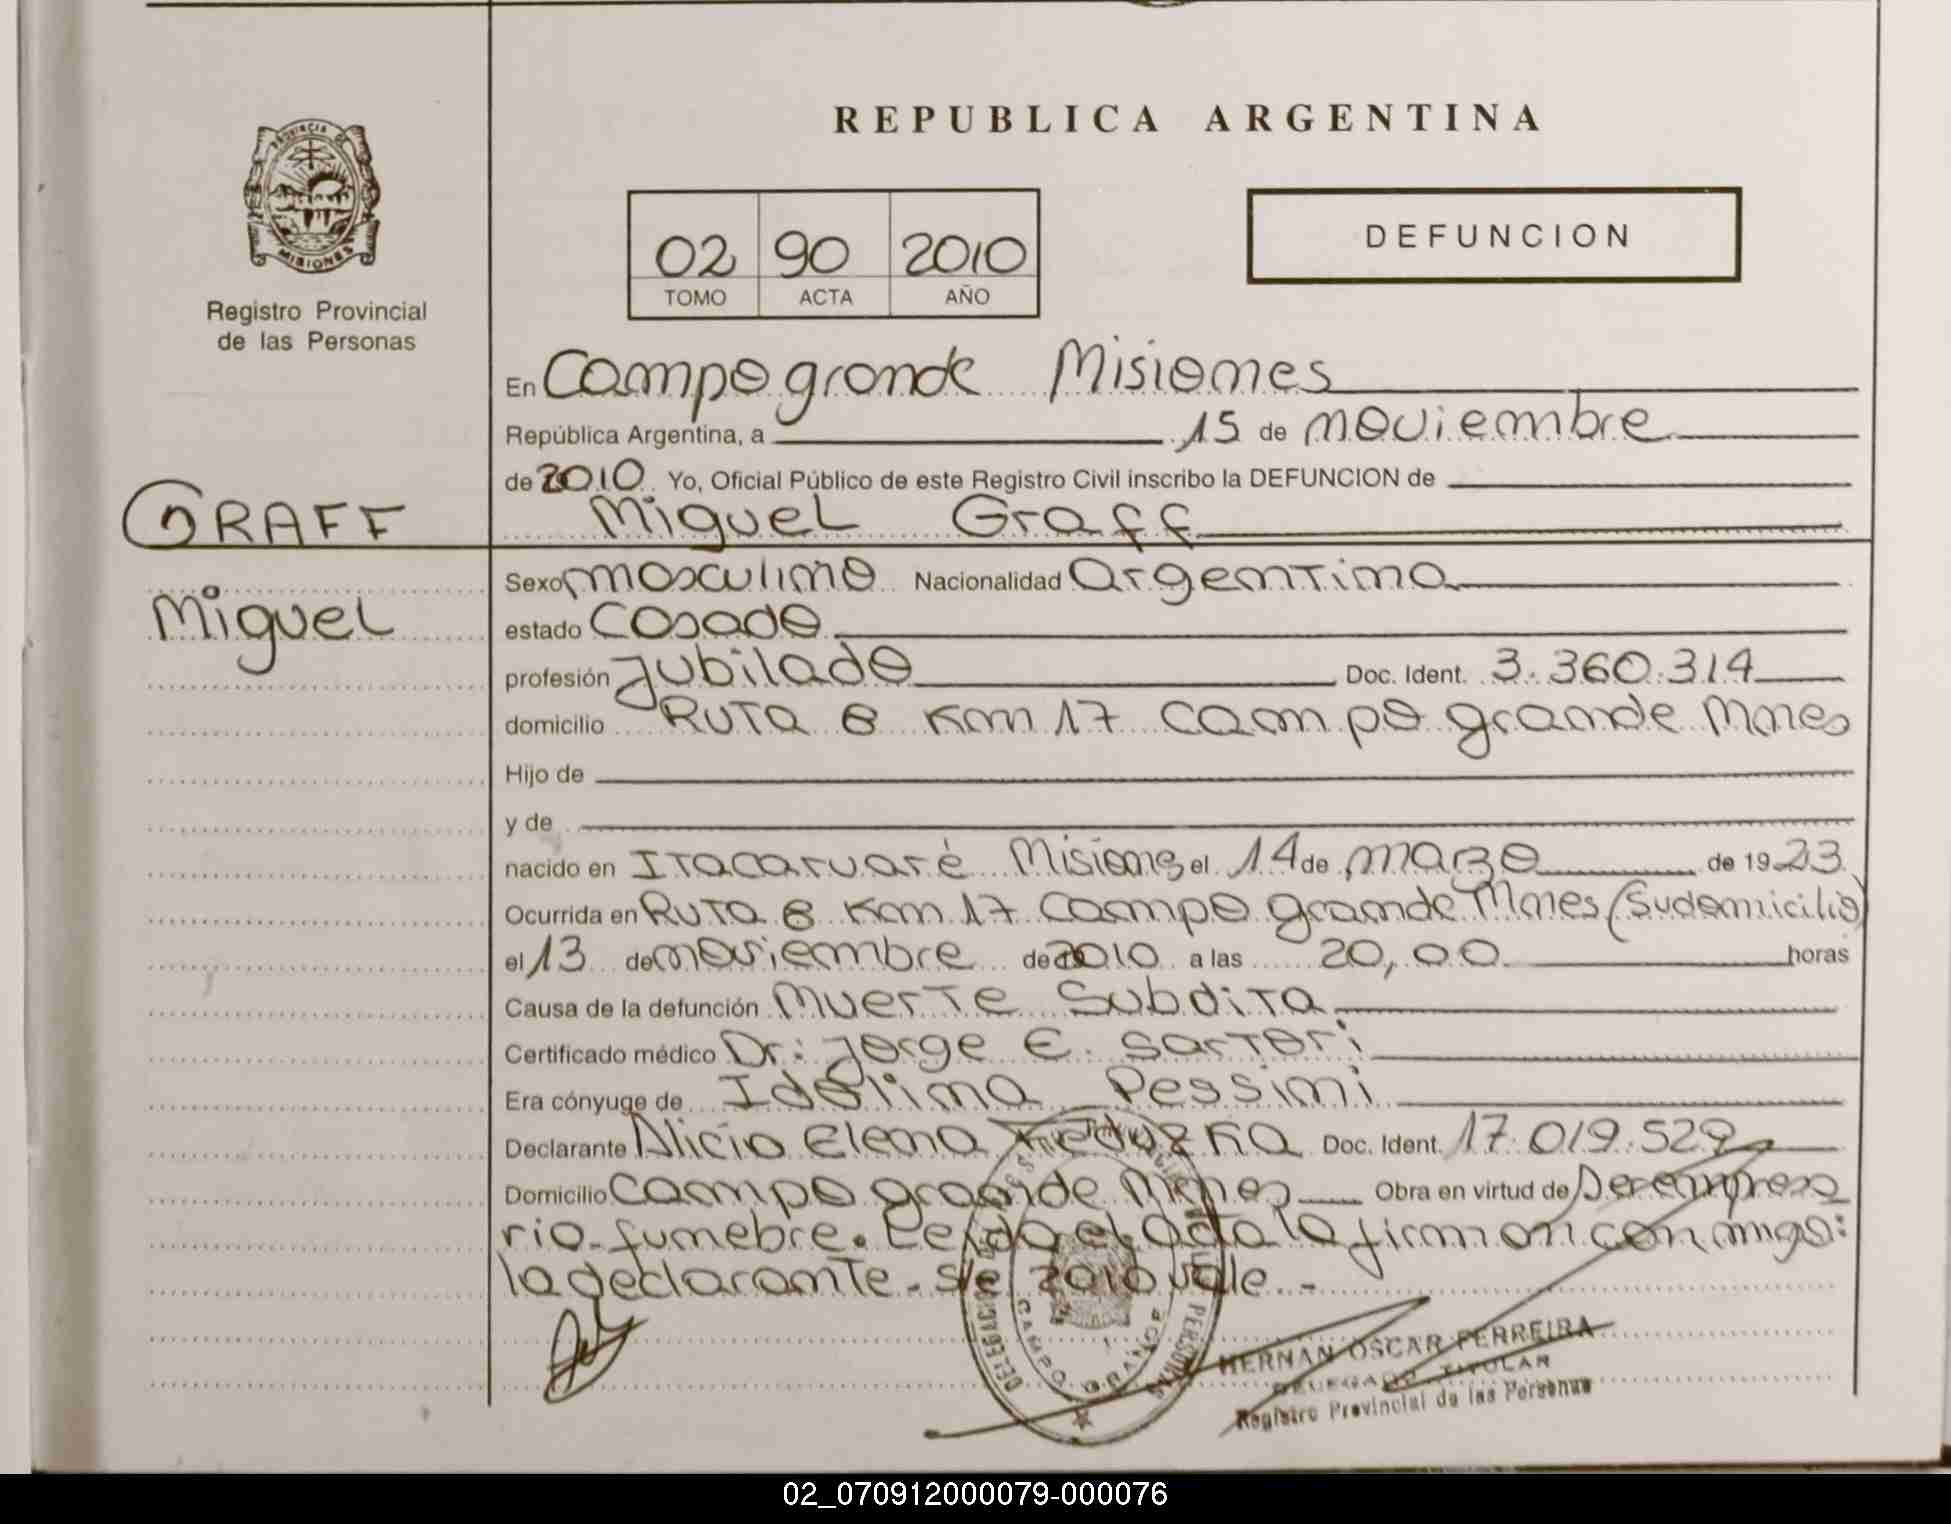 REPUBLICA ARGENTINA
PROVINCIA D
MISIONES
Registro Provincial
de las Personas
02 90 2010
TOMO ACTA AÑO
DEFUNCION
En Campo grande Misiones
República Argentina, a 15 de noviembre
de 2010 Yo, Oficial Público de este Registro Civil inscribo la DEFUNCION de
Miguel Graff
GRAFF
Miguel
Sexo masculino Nacionalidad Argentina
estado Casado
profesión Jubilado Doc. Ident. 3.360.314
domicilio Ruta 8 Km 17 Campo grande Mnes
Hijo de
y de
nacido en Itacaruaré Misiones el 14 de marzo de 1923
Ocurrida en Ruta 8 Km 17 Campo grande Mnes (Su domicilio)
el 13 de noviembre de 2010 a las 20,00 horas
Causa de la defunción Muerte Subdita
Certificado médico Dr: Jorge E. Sartori
Era cónyuge de Idelina Pessini
Declarante Alicia Elena Doc. Ident. 17.019.529
Domicilio Campo grande Mnes Obra en virtud de Ser empresa
rio funebre. Leida el Acta la firman conmigo:
la declarante - S/e 2010 vale -
CAMPO GRANDE
HERNAN OSCAR FERREIRA
DELEGADO TITULAR
Registro Provincial de las Personas
02_070912000079-000076